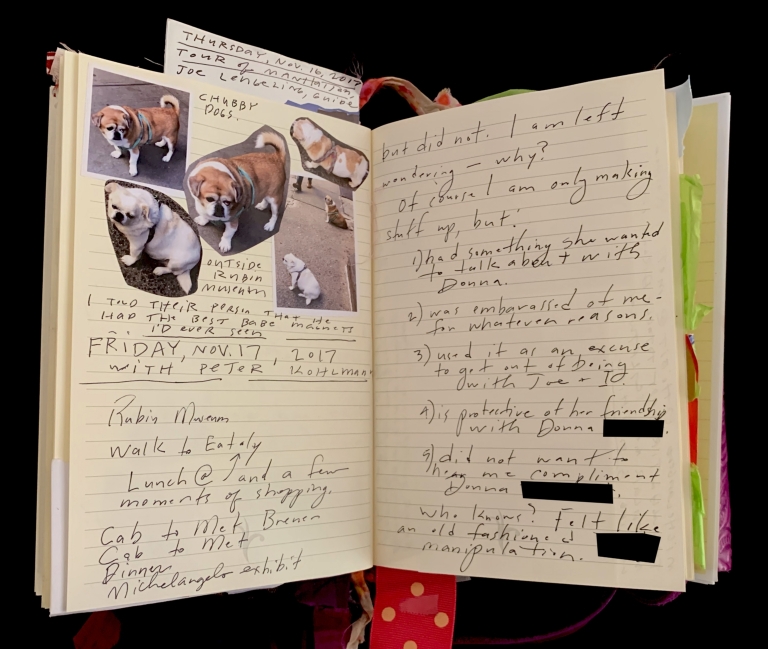 THURSDAY, NOV. 16, 2017
TOUR OF MANHATTAN,
JOE LENGELING, GUIDE
CHUBBY
DOGS.
OUTSIDE
RUBIN
MUSEUM
I TOLD THEIR PERSON THAT HE
HAD THE BEST BABE MAGNETS
I'D EVER SEEN
FRIDAY, NOV. 17, 2017
WITH PETER KOHLMAN
Rubin Museum
Walk to Eataly
Lunch @ ↑ and a few
moments of shopping.
Cab to Met Breuer
Cab to Met
Dinner
Michelangelo exhibit
but did not. I am left
wondering – why?
Of course I am only making
stuff up, but:
1) had something she wanted
to talk about with
Donna.
2) was embarassed of me –
for whatever reasons.
3) used it as an excuse
to get out of being
with Joe + JO.
4) is protective of her friendship
with Donna
5) did not want to
hear me compliment
Donna
Who knows? Felt like
an old fashioned
manipulation.